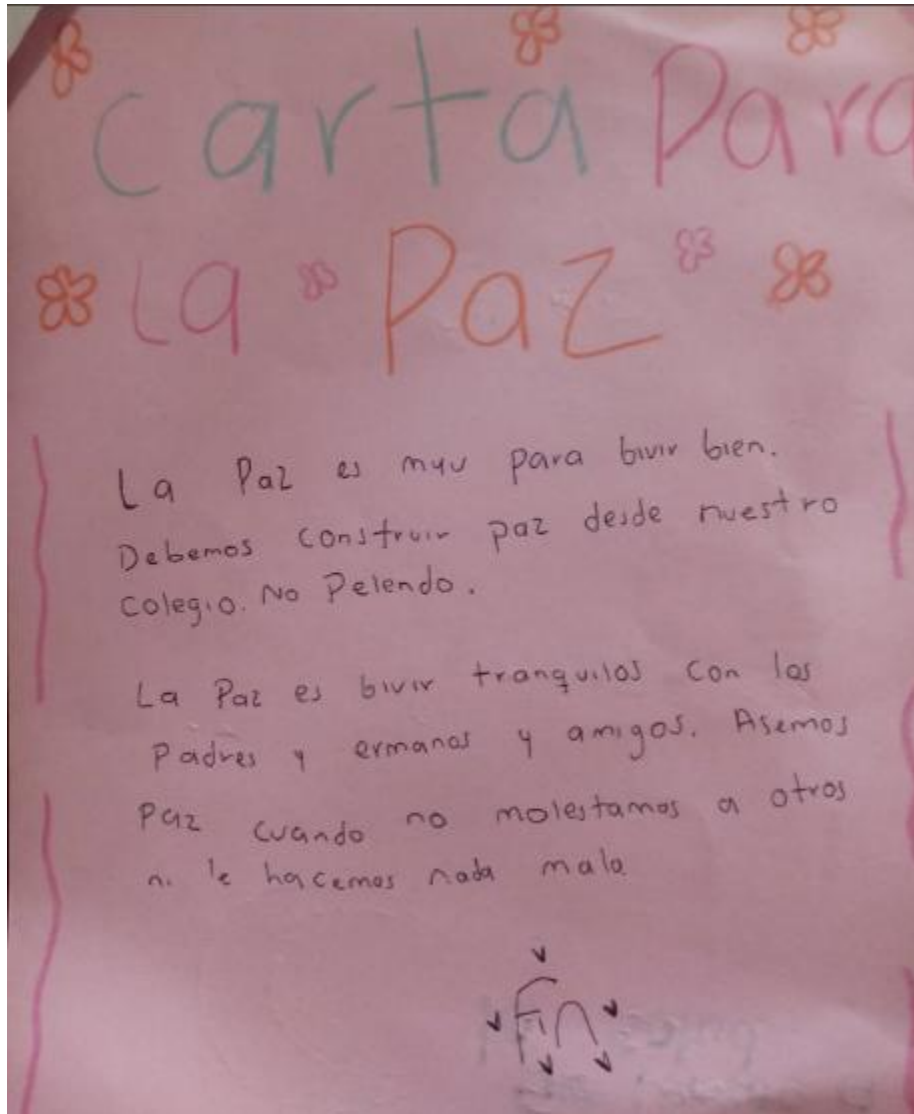 Carta Para
La Paz
La Paz es muy para bivir bien.
Debemos construir paz desde nuestro
colegio. No Pelendo.
La Paz es bivir tranquilos con los
Padres y ermanos y amigos. Asemos
paz cuando no molestamos a otros
ni le hacemos nada malo
Fin